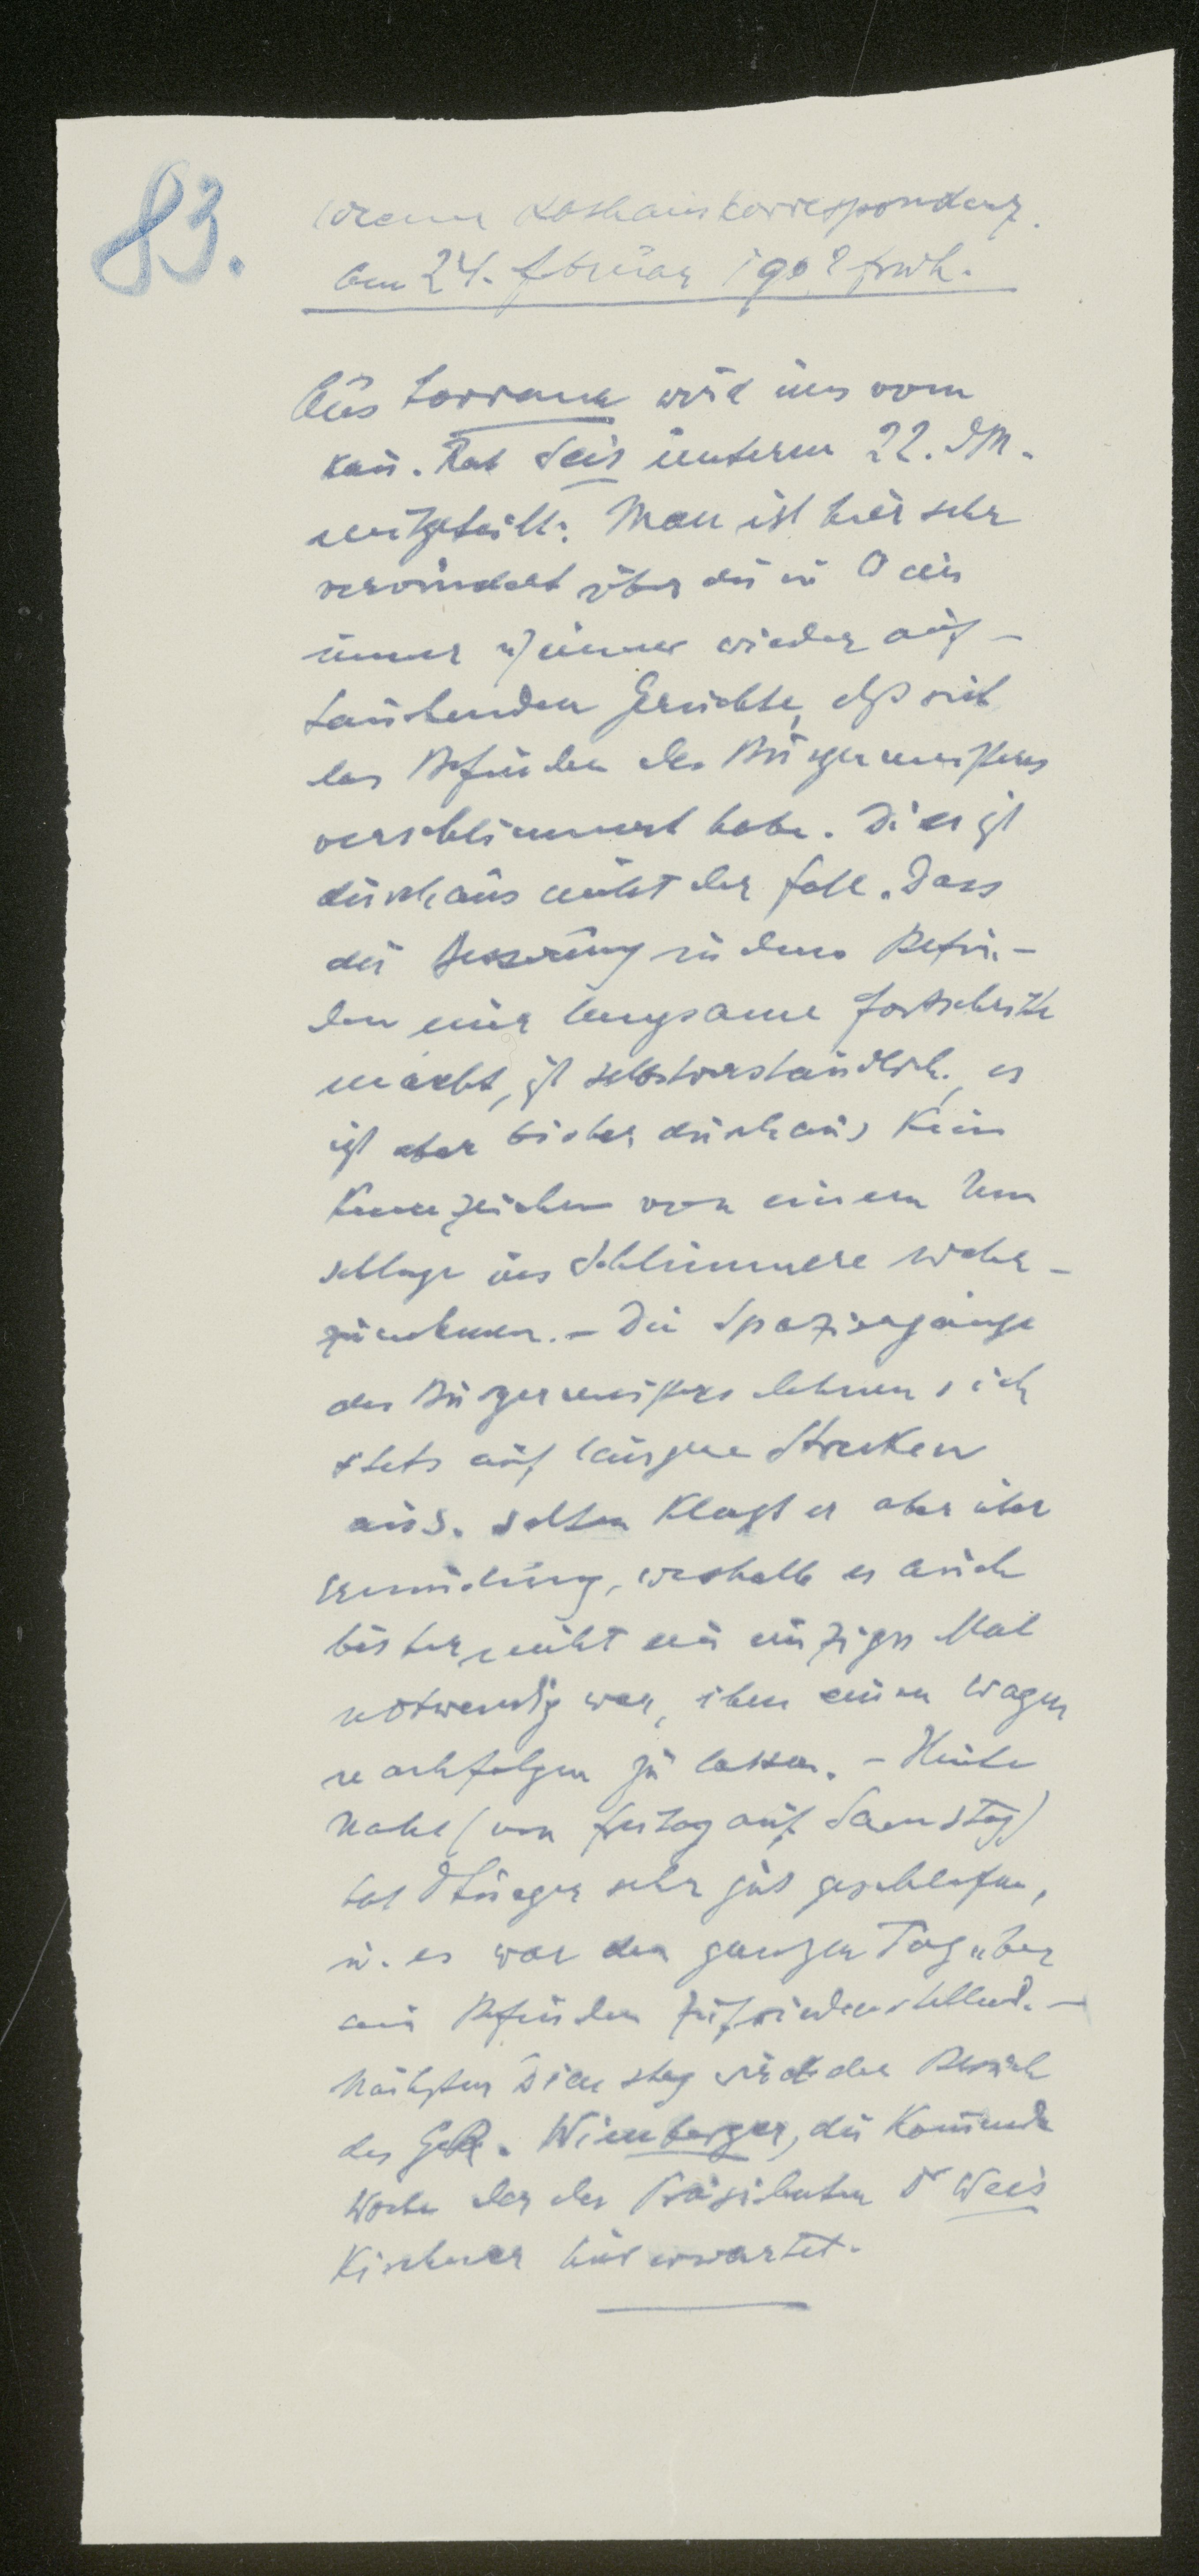 83.
Wiener Rathauskorrespondenz.
Am 24. Februar 1908 früh.
Aus Lovrana wird uns vom
kais. Rat Seis unterm 22. dM.
mitgeteilt: Man ist hier sehr
verwundert über die in Wien
immer u. immer wieder auf-
tauchenden Gerüchte, dß sich
das Befinden des Bürgermeisters
verschlimmert habe. Dies ist
durchaus nicht der Fall. Dass
die Besserung in dem Befin-
den nur langsame Fortschritte
macht, ist selbstverständlich, es
ist aber bisher durchaus kein
Kennzeichen von einem Um
schlage ins Schlimmere wahr-
zunehmen. – Die Spaziergänge
des Bürgermeisters dehnen sich
stets auf längere Strecken
aus. Selten klagt er aber über
Ermüdung, weshalb es auch
bisher nicht ein einziges Mal
notwendig war, ihm einen Wagen
nachfolgen zu lassen. – Heute
Nacht (von Freitag auf Samstag)
hat Dr Lueger sehr gut geschlafen,
u. es war den ganzen Tag über
sein Befinden zufriedenstellend. –
Nächsten Dienstag wird der Besuch
des GR. Wimberger, die kommende
Woche der des Präsidenten Dr Weis
kirchner hier erwartet.